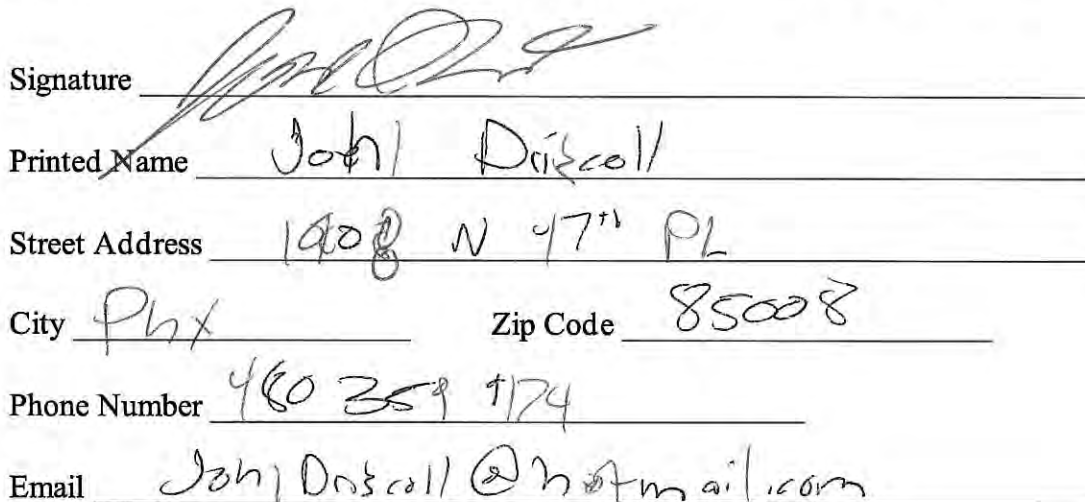 Signature
Printed Name John Driscoll
Street Address N 47th PL
City Phx Zip Code 85008
Phone Number 480
Email JohnDriscoll@hotmail.com